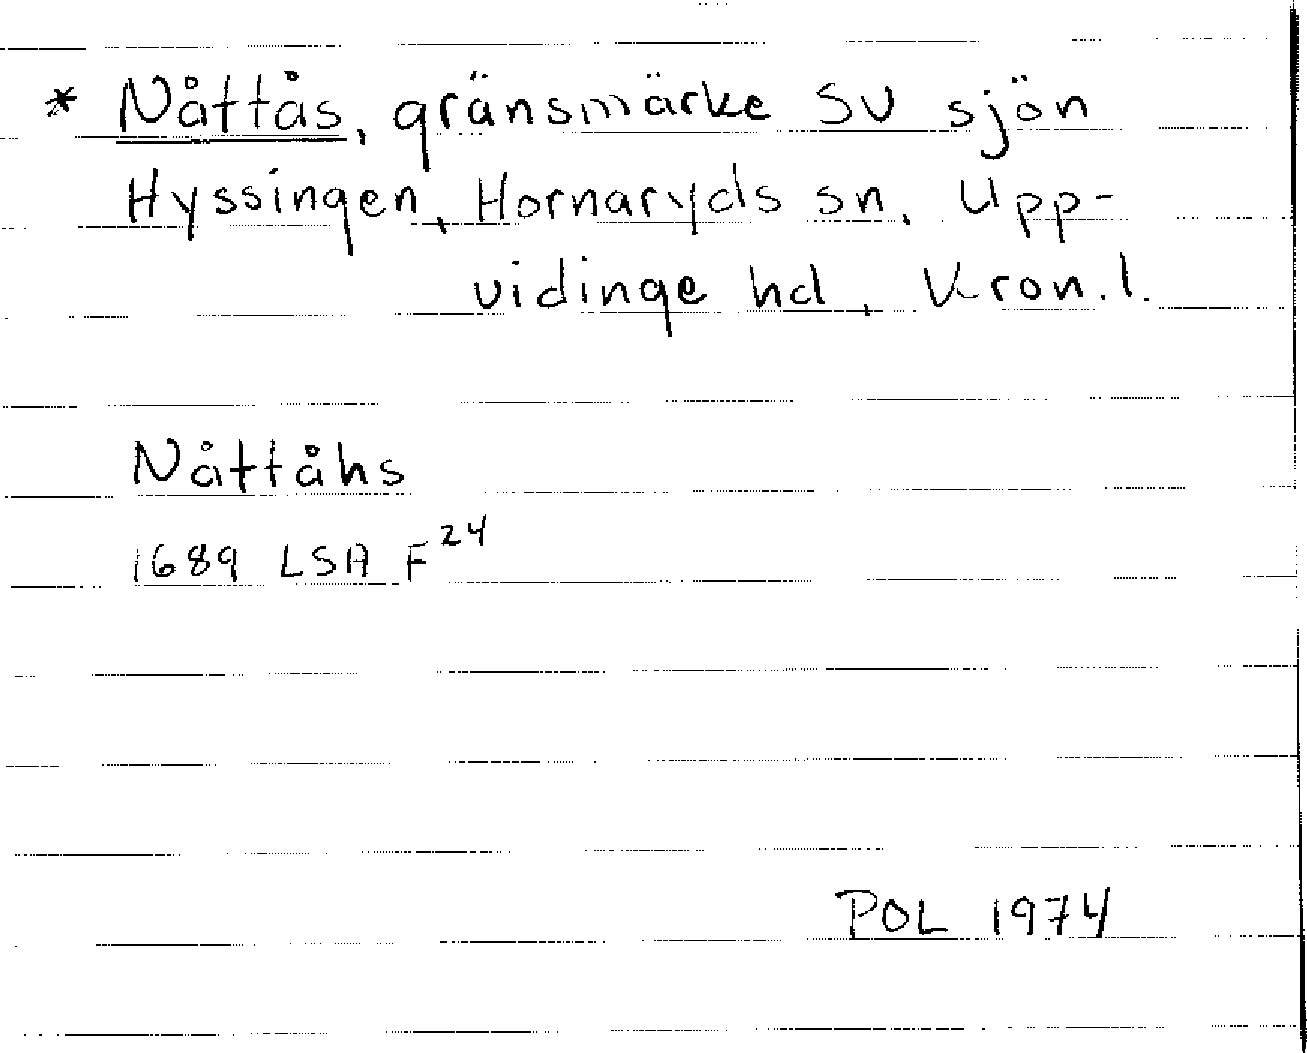 * Nåttås, gränsmärke SV sjön
Hyssingen, Hornaryds sn, Upp-
vidinge hd, Kron.l.
Nåttåhs
1689 LSA F24
POL 1974